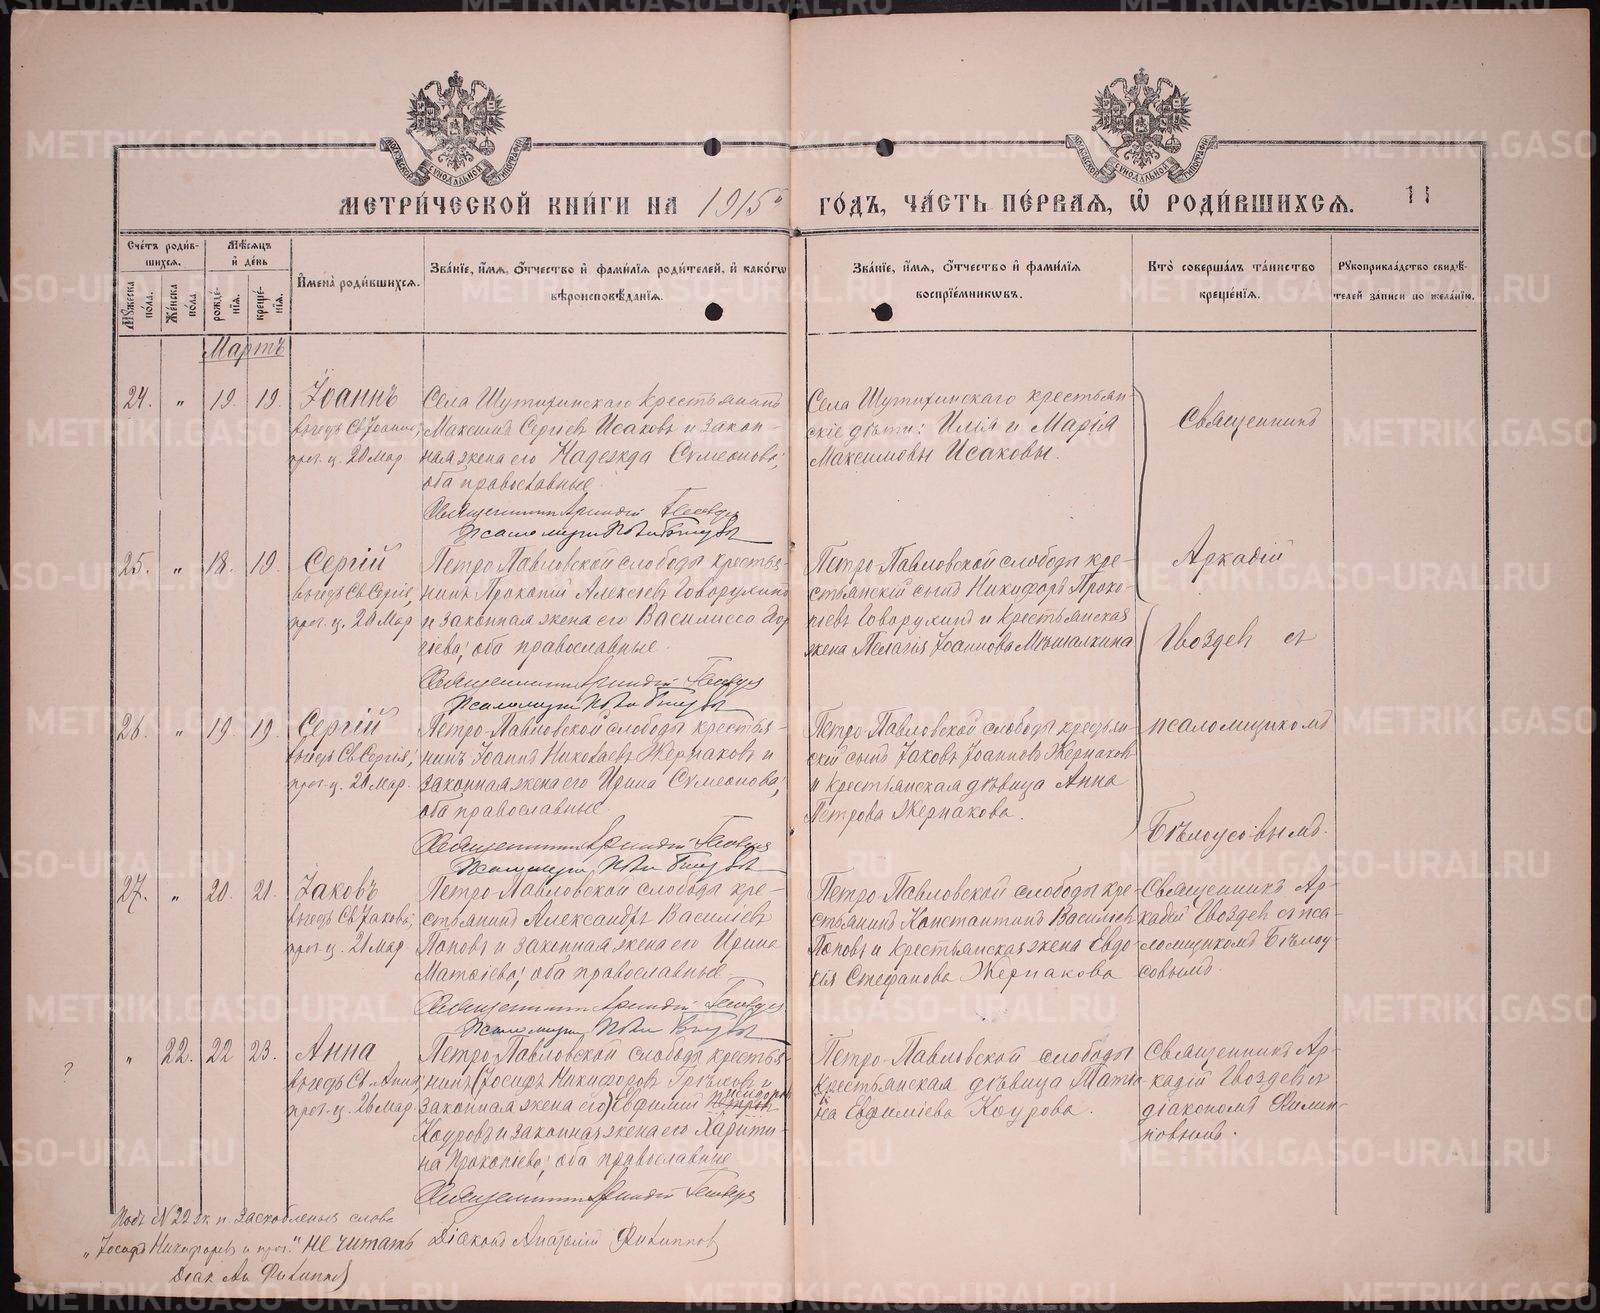 МЕТРИ́ЧЕСКОЙ КНИ́ГИ НА 1915й ГО́ДЪ, ЧА́СТЬ ПЕ́РВАЯ, Ѡ РОДИ́ВШИХСЯ. 11
Сче́тъ роди́вшихся.
Мꙋ́жеска по́ла. Же́нска по́ла
Мѣ́сяцъ и҆ де́нь
рожде́нїя. креще́нїя.
И҆мена̀ роди́вшихся.
Зва́нїе, и҆́мя, ѻ҆́тчество и҆ фами́лїя роди́телей, и҆ како́гѡ
вѣроисповѣ́данїя.
Зва́нїе, и҆́мя, ѻ҆́тчество и҆ фами́лїя
воспрїе́мникѡвъ.
Кто̀ соверша́лъ та́инство
креще́нїя.
Рꙋкоприкла́дство свидѣ́телей за́писи по жела́нїю.
Мартъ
24. " 19. 19.
Іоаннъ
въ честь Св Іоанна,
прп. ц. 20 Мар
Села Шутихинскаго крестьянинъ
Максимъ Сергіевъ Исаковъ и закон-
ная жена его Надежда Сѵмеонова;
оба православные
Села Шутихинскаго крестьян-
скіе дѣти: Илія и Марія
Максимовы Исаковы.
Священникъ
25. " 18. 19.
Сергій
въ честь Св Сергія,
прп. ц. 20 Мар
Петро-Павловской слободы крестья-
нинъ Прокопій Алексіевъ Говорухинъ
и законная жена его Василисса
оба православные.
Петро-Павловской слободы кре-
стьянскій сынъ Никифоръ Проко-
піевъ Говорухинъ и крестьянская
жена Пелагія Іоаннова
Аркадій
Гвоздевъ съ
26. " 19. 19.
Сергій
въ честь Св Сергія,
прп. ц. 20 Мар.
Петро-Павловской слободы крестья-
нинъ Іоаннъ Николаевъ Жернаковъ и
законная жена его Ирина Сѵмеонова;
оба православные.
Петро-Павловской слободы крестьян-
скій сынъ Іаковъ Іоанновъ Жернаковъ
и крестьянская дѣвица Анна
Петрова Жернакова.
псаломщикомъ
Бѣлоусовымъ.
27. " 20. 21.
Іаковъ
въ честь Св Іакова,
прп. ц. 21 Мар
Петро-Павловской слободы кре-
стьянинъ Александръ Василіевъ
Поповъ и законная жена его Ирина
Матѳіева; оба православные.
Петро-Павловской слободы кре-
стьянинъ Константинъ Василіевъ
Поповъ и крестьянская жена Евдо-
кія Стефанова Жернакова
Священникъ Ар-
кадій Гвоздев съ пса-
ломщикомъ Бѣлоу-
совымъ.
" 22. 22 23.
Анна
въ честь Св Анны,
прп. ц. 26 Мар.
Петро-Павловской слободы крестья-
нинъ (Іосифъ Никифоровъ и
законная жена его) Евфимій
Коуровъ и законная жена его Харити-
на Прокопіева; оба православные
Петро-Павловской слободы
крестьянская дѣвица Татіа-
на Евфиміева Коурова.
Священникъ Ар-
кадій Гвоздев съ
діакономъ Филип-
повымъ.
Діаконъ Анатолій Филипповъ
Подъ N 22 ж. п. заскобленныя слова
"Іосифъ Никифоровъ и проч." не читать
Діак. Ан. Филипповъ
METRIKI.GASO-URAL.RU